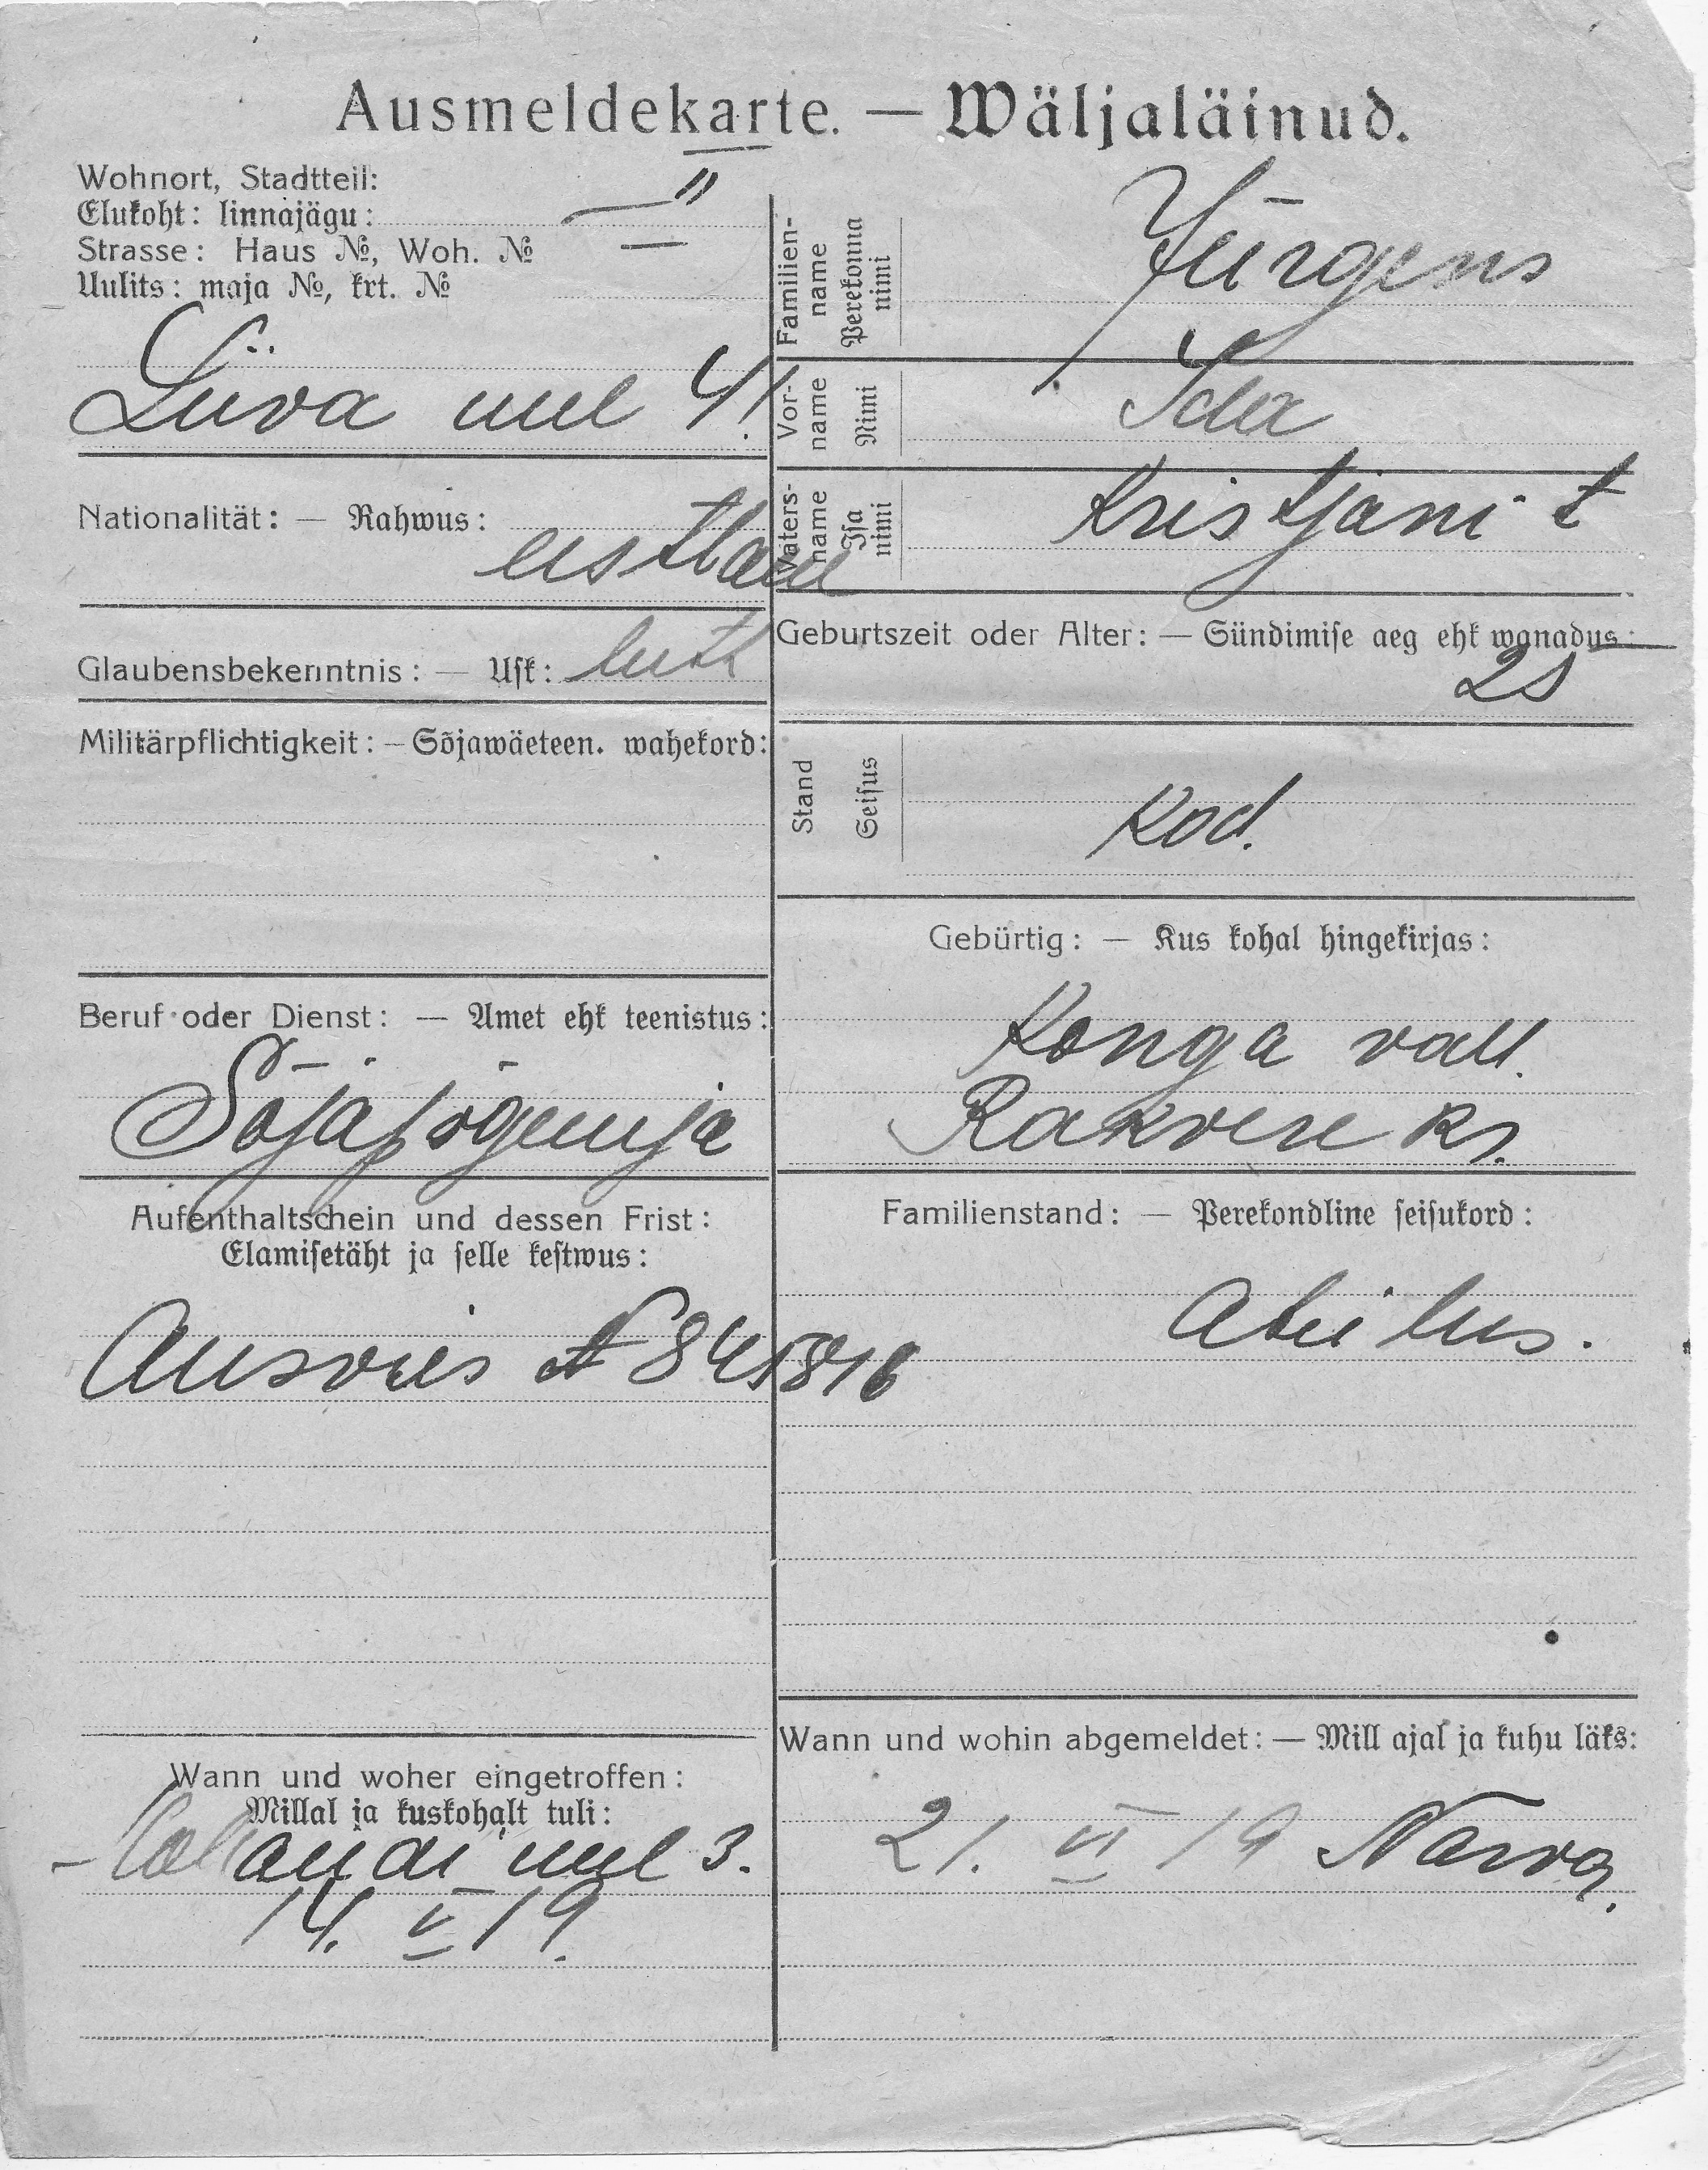 Ausmeldekarte. — Wäljaläinud.
Wohnort, Stadtteil:
Elukoht: linnajägu: II
Strasse: Haus №, Woh. №
Uulits: maja №, krt. №
Liiva uul 41.
Nationalität: — Rahwus:
eestlane
Glaubensbekenntnis: — Usk: luth
Militärpflichtigkeit: — Sõjawäeteen. wahekord:
Beruf oder Dienst: — Amet ehk teenistus:
Sõjapõgeneja
Aufenthaltschein und dessen Frist:
Elamisetäht ja selle kestwus:
Ausveis №
Wann und woher eingetroffen:
Millal ja kuskohalt tuli:
uul 3.
14. V 19.
Familien-name
Perekonna nimi
Jürgens
Vor-name
Nimi
Ida
Vaters-name
Isa nimi
Kristjani t
Geburtszeit oder Alter: — Sündimise aeg ehk wanadus:
Stand
Seisus
Kod.
Gebürtig: — Kus kohal hingekirjas:
Konga vall.
Rakvere kr.
Familienstand: — Perekondline seisukord:
Abielus.
Wann und wohin abgemeldet: — Mill ajal ja kuhu läks:
21. VI 19 Narva.